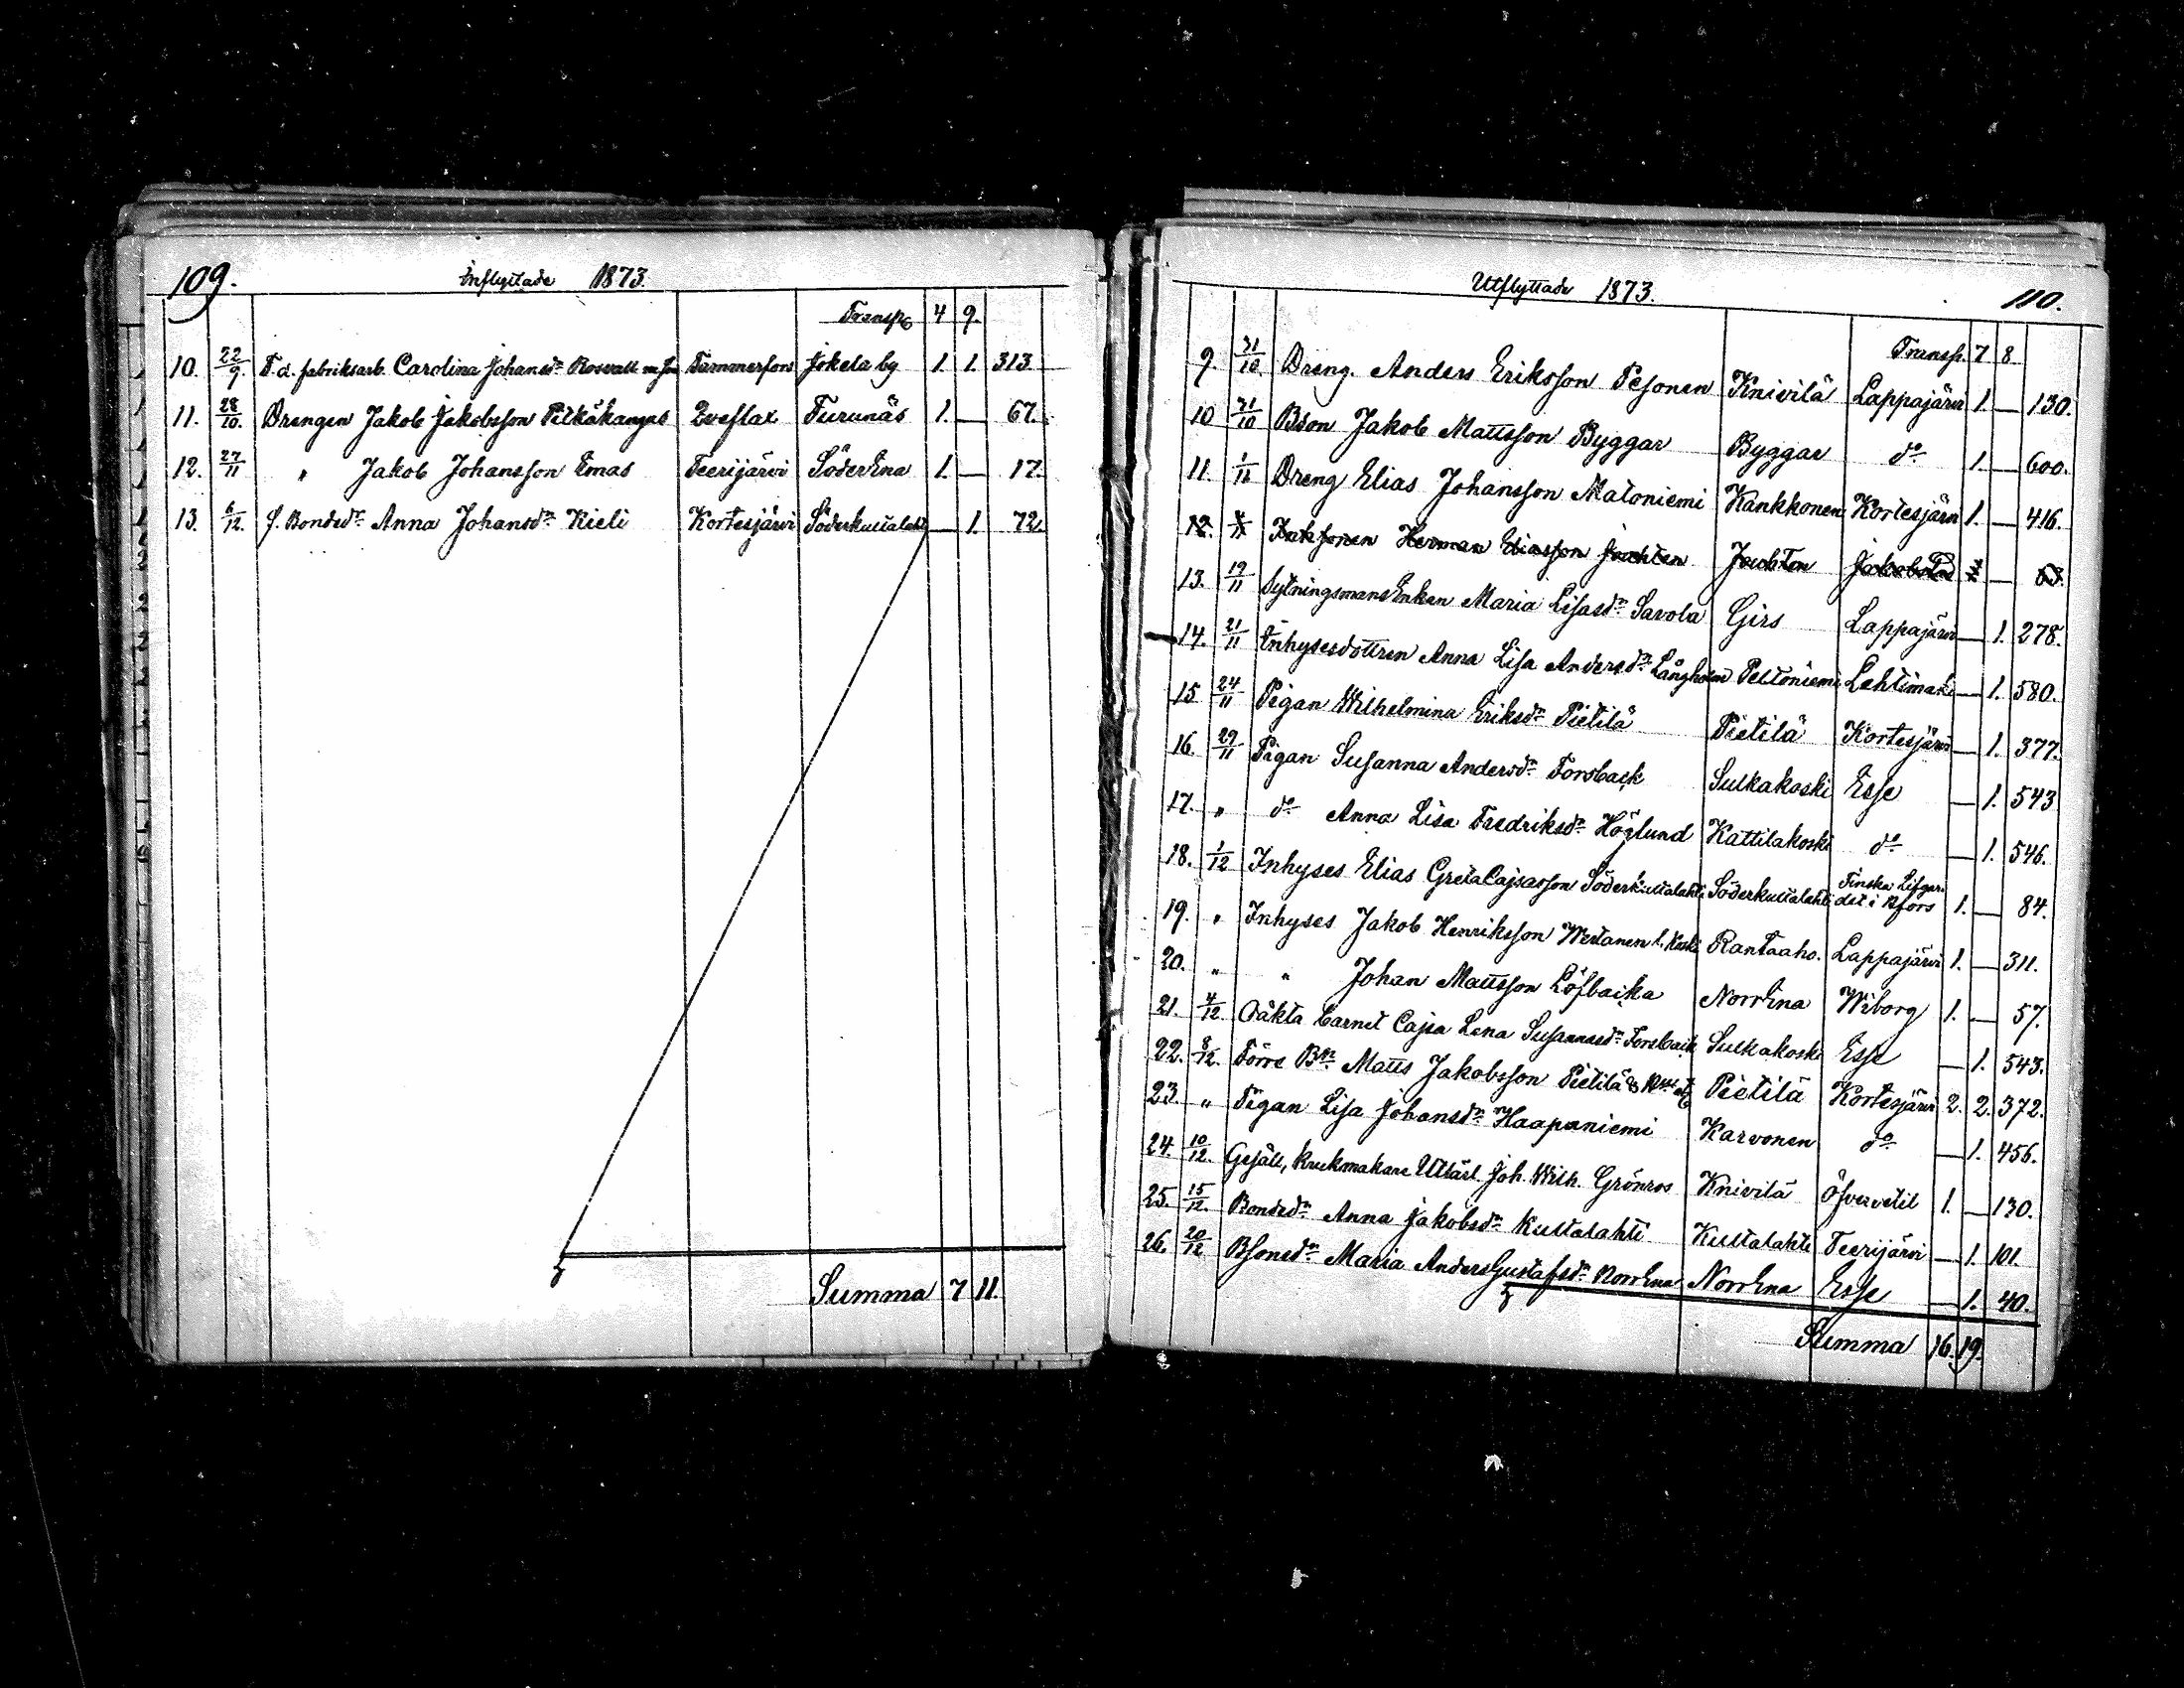 109. Inflyttade 1873.
Transp. 4 9.
10. 22/9. F.d. fabriksarb. Carolina Johansdr Rosvall m Son Tammerfors Jokela by 1. 1. 313
11. 28/10. Drengen Jakob Jakobsson Pitkäkangas Qveflax Furunäs 1. — 67.
12. 27/11 " Jakob Johansson Emas Teerijärvi SöderEna 1. — 17.
13. 6/12. f. Bondedr Anna Johansdr Kieli Kortesjärvi Söderkultalahti — 1. 72.
Summa 7 11.
Utflyttade 1873. 110.
Transp. 7 8
9. 31/10. Dreng. Anders Eriksson Pesonen Knivilä Lappajärvi 1. — 130.
10 31/10 Bson Jakob Mattsson Byggar Byggar do 1. — 600.
11. 1/11 Dreng Elias Johansson Matoniemi Kankkonen Kortesjärvi 1. — 416.
12. Herman Eliasson Jakobstad —
13. 19/11 Sytningsmans Enkan Maria Lisasdr Savola Girs Lappajärvi — 1. 278.
14. 21/11 Inhysesdottren Anna Lisa Andersdr Långholm Peltoniemi Lehtimäki — 1. 580.
15 24/11 Pigan Wilhelmina Eriksdr Pietilä Pietilä Kortesjärvi — 1. 377.
16. 29/11 Pigan Susanna Andersdr Forsback Sulkakoski Esse — 1. 543
17. " do Anna Lisa Fredriksdr Höglund Kattilakoski do — 1. 546.
18. 1/12 Inhyses Elias GretaCajsasson Söderkultalahti Söderkultalahti Finska Lifgardet i Hfors 1. — 84.
19. " Inhyses Jakob Henriksson Westanen l. Koski Rantaaho. Lappajärvi 1. — 311.
20. " " Johan Mattsson Löfbacka NorrEna Wiborg 1. — 57.
21. 4/12. Oäkta barnet Cajsa Lena Susannasdr Forsback Sulkakoski Esse — 1. 543.
22. 8/12. Förre Bn Matts Jakobsson Pietilä Pietilä Kortesjärvi 2. 2. 372.
23. " Pigan Lisa Johansdr Haapaniemi Karvonen do — 1. 456.
24. 10/12. Gesäll, krukmakare Utlärl. Joh. Wilh. Grönros Knivilä Öfvervetil 1. — 130.
25. 15/12. Bondedr Anna Jakobsdr Kultalahti Kultalahti Teerijärvi — 1. 101.
26. 20/12 Bsonsdr Maria AndersGustafsdr NorrEna NorrEna Esse — 1. 40.
Summa 16. 19.